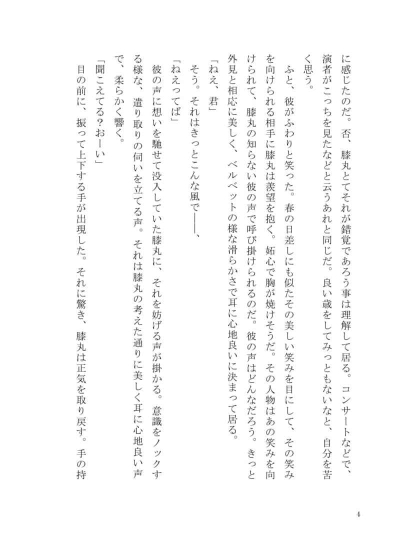 に感じたのだ。否、膝丸とてそれが錯覚であろう事は理解して居る。コンサートなどで、
演者がこっちを見たなどと云うあれと同じだ。良い歳をしてみっともないなと、自分を苦
く思う。
ふと、彼がふわりと笑った。春の日差しにも似たその美しい笑みを目にして、その笑み
を向けられる相手に膝丸は羨望を抱く。妬心で胸が焼けそうだ。その人物はあの笑みを向
けられて、膝丸の知らない彼の声で呼び掛けられるのだ。彼の声はどんなだろう。きっと
外見と相応に美しく、ベルベットの様な滑らかさで耳に心地良いに決まって居る。
「ねえ、君」
そう。それはきっとこんな風で――、
「ねえってば」
彼の声に想いを馳せて没入していた膝丸に、それを妨げる声が掛かる。意識をノックす
る様な、遣り取りの伺いを立てる声。それは膝丸の考えた通りに美しく耳に心地良い声
で、柔らかく響く。
「聞こえてる？おーい」
目の前に、振って上下する手が出現した。それに驚き、膝丸は正気を取り戻す。手の持
4